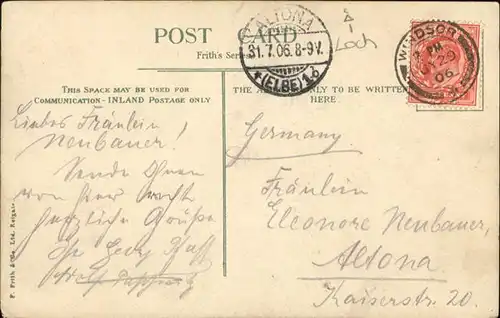 POST CARD
Frith's Series
ALTONA
31.7.06.8-9V.
(ELBE)
Loch
WINDSOR
PM
29
06
THIS SPACE MAY BE USED FOR
COMMUNICATION - INLAND POSTAGE ONLY
THE ONLY TO BE WRITTEN
HERE.
Liebes Fräulein
Neubauer!
Sende Ihnen
von hier recht
herzliche Grüße
Ihr
Germany
Fräulein
Eleonore Neubauer,
Altona
Kaiserstr. 20.
F. Frith & Co. Ltd. Reigate.